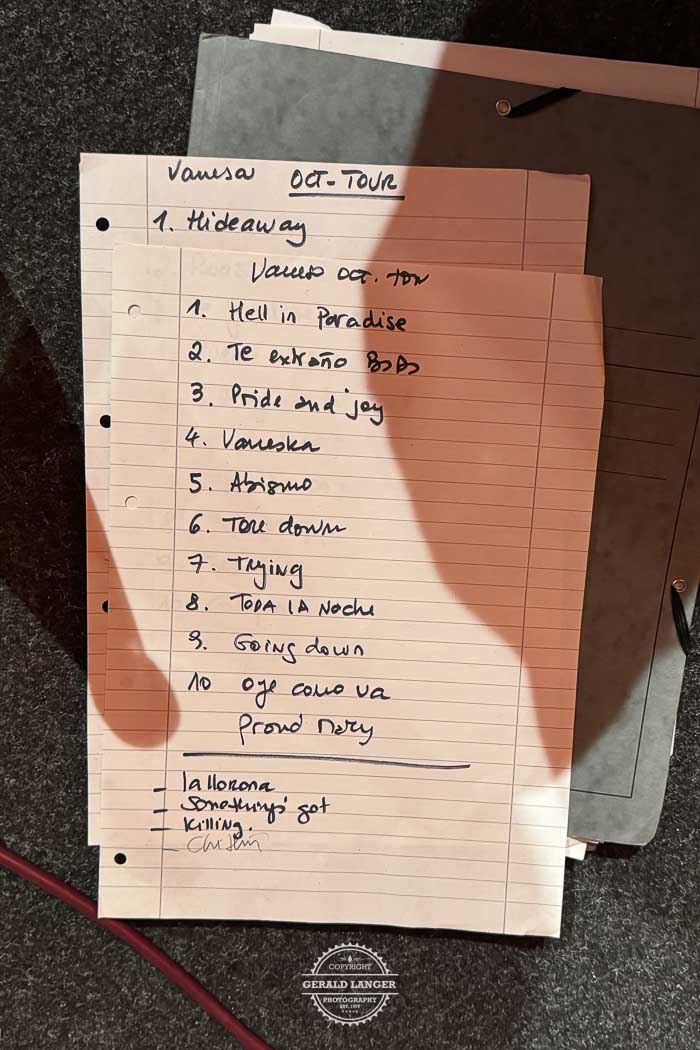 Vanesa OCT-TOUR
1. Hideaway
Vanesa OCT. TOUR
1. Hell in Paradise
2. Te extraño BsAs
3. Pride and joy
4. Vaneska
5. Abismo
6. Tore down
7. Trying
8. TODA LA Noche
9. Going down
10 oye como va
Proud Mary
- la llorona
- Something's got
- Killing.
-
COPYRIGHT
GERALD LANGER
PHOTOGRAPHY